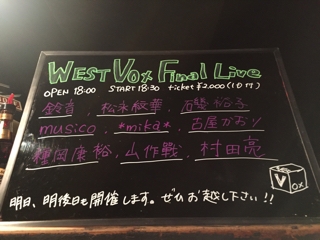 WEST VOX Final Live
OPEN 18:00 START 18:30 ticket ¥2,000(1D付)
鈴音、松永紋華、石塚
musico *mika* 古屋かおり
種岡康裕, 山作戦、村田亮
VOX
明日、明後日も開催します。ぜひお越し下さい!!